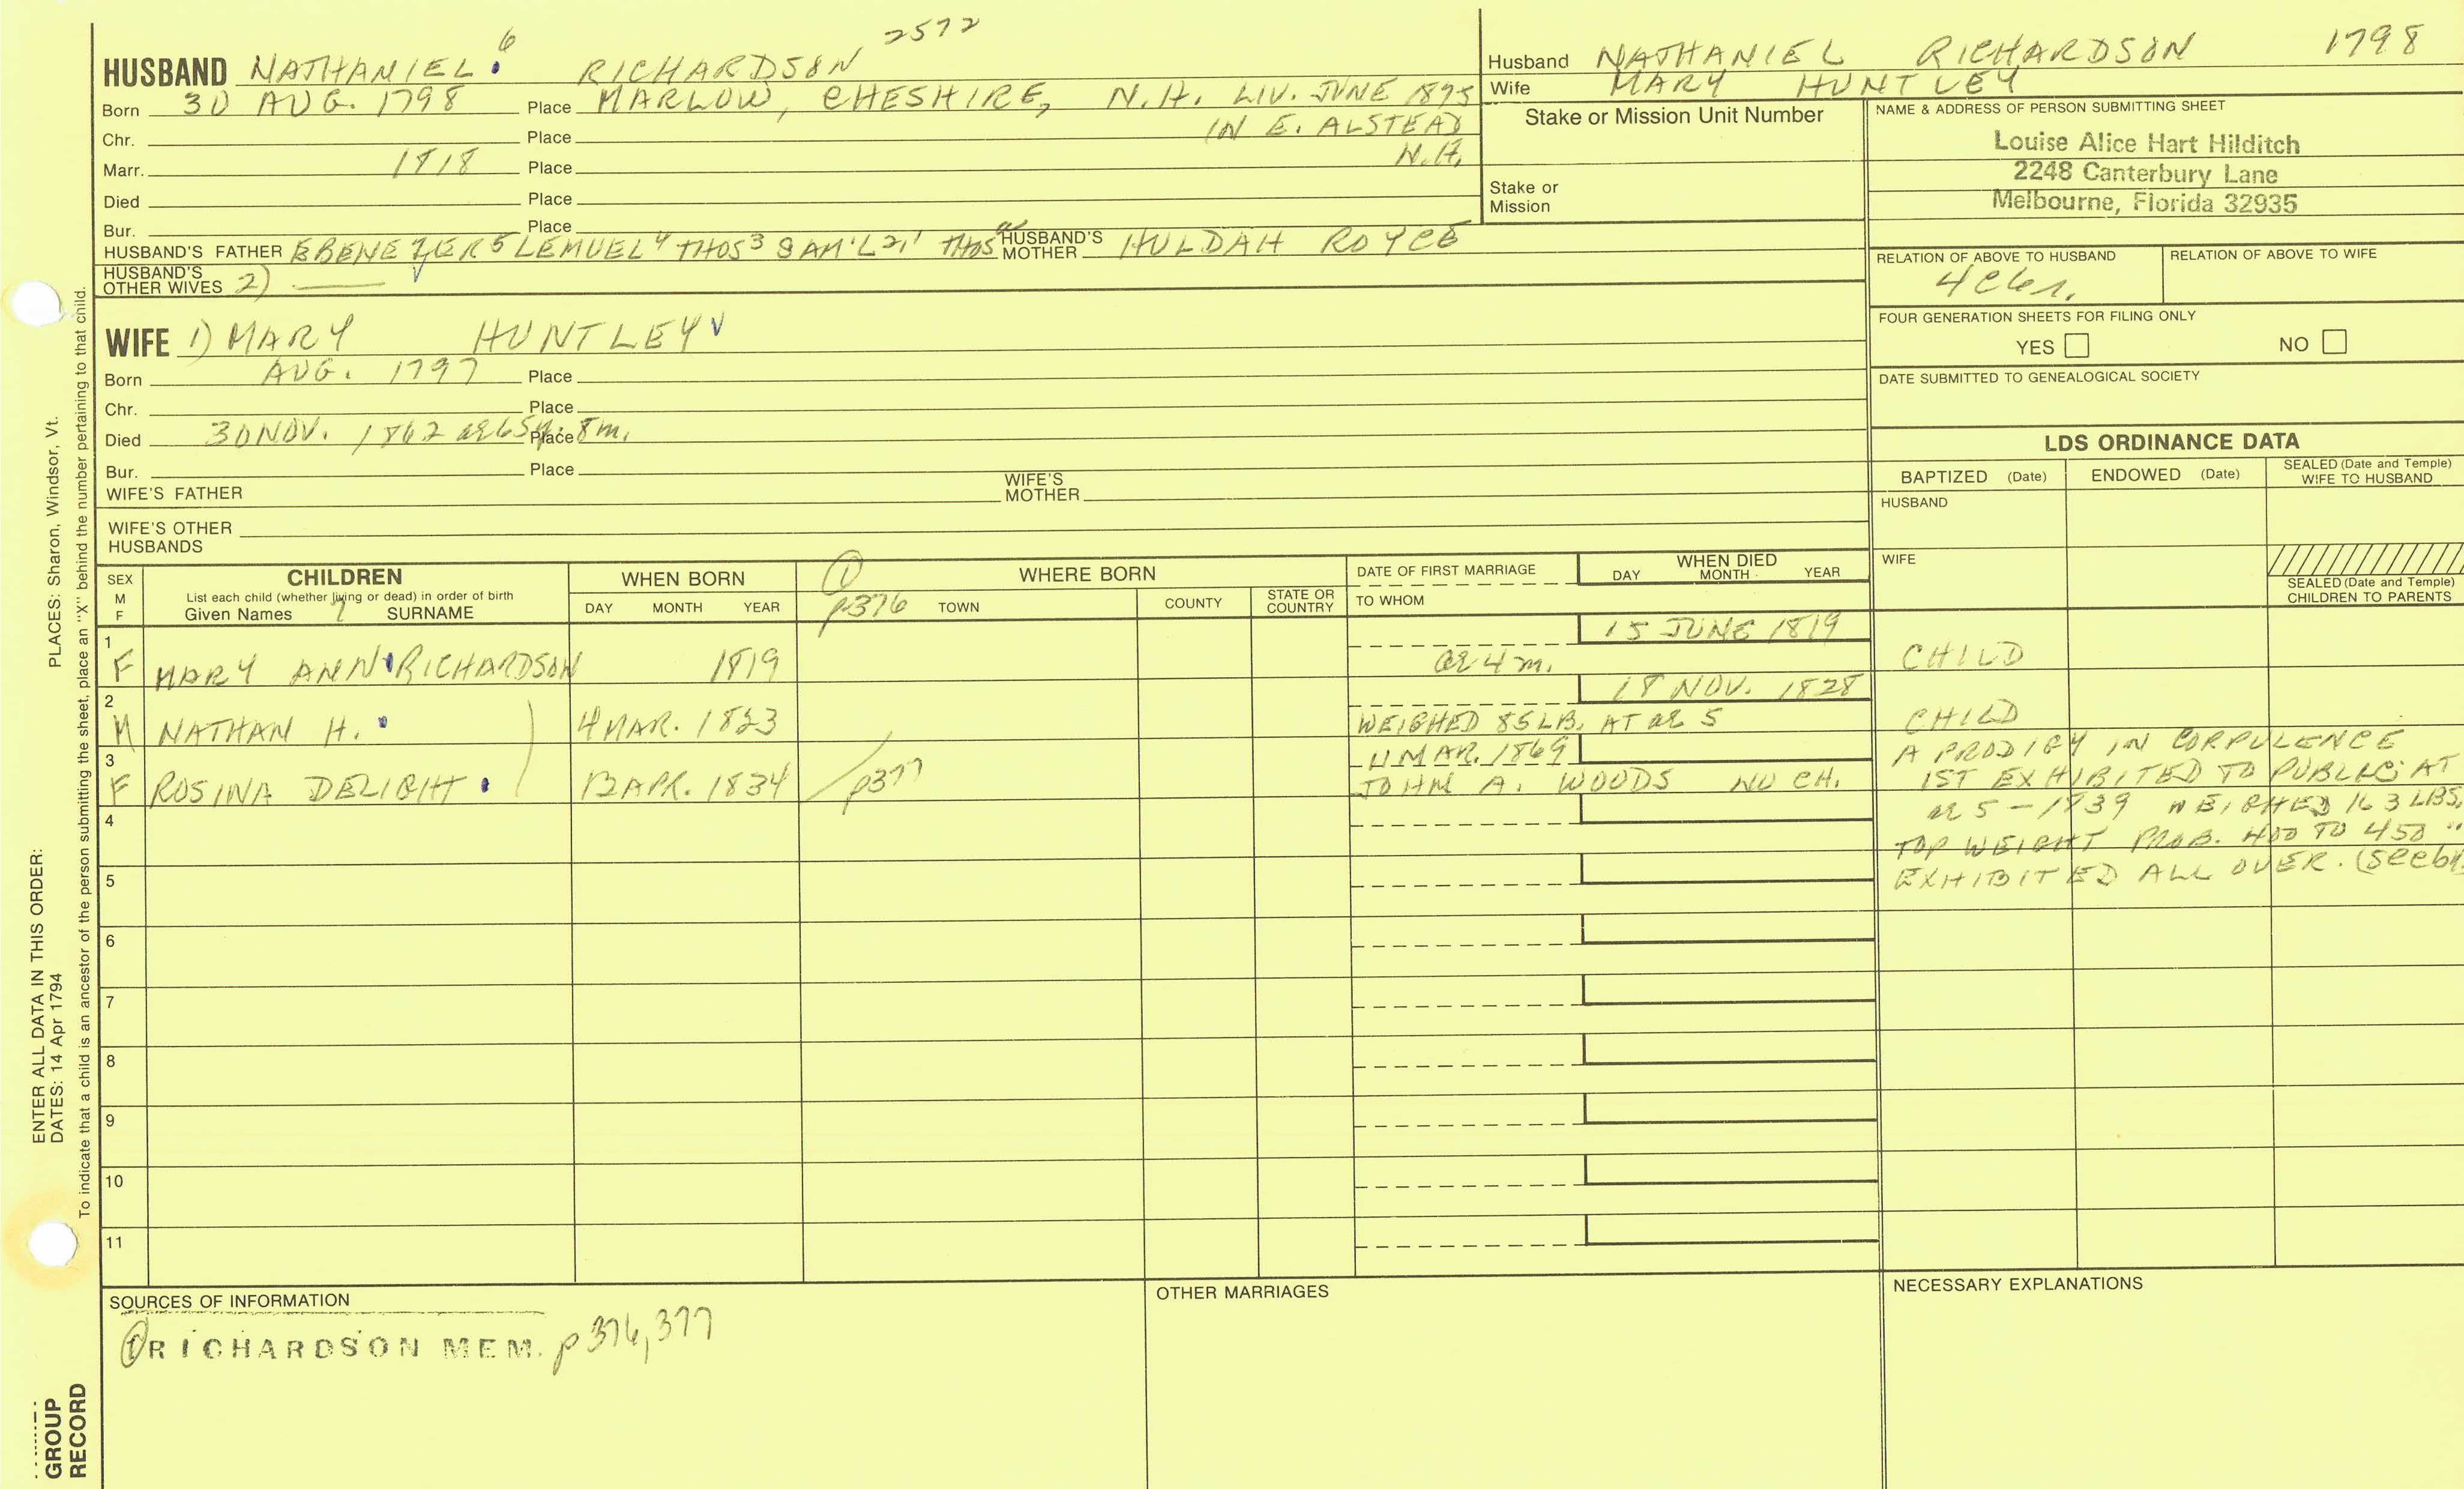 2572
HUSBAND NATHANIEL 6 RICHARDSON
Born 30 AUG. 1798 Place MARLOW, CHESHIRE, N.H. LIV. JUNE 1875
IN E. ALSTEAD
Chr. Place
N.H.
Marr. 1818 Place
Died Place
Bur. Place
HUSBAND'S FATHER EBENEZER 5 LEMUEL 4 THOS 3 SAM'L 2,1 THOS HUSBAND'S MOTHER HULDAH ROYCE
HUSBAND'S OTHER WIVES 2)
WIFE 1) MARY HUNTLEY
Born AUG. 1797 Place
Chr. Place
Died 30 NOV. 1862 ae 65y. 8m. Place
Bur. Place
WIFE'S FATHER WIFE'S MOTHER
WIFE'S OTHER HUSBANDS
Husband NATHANIEL RICHARDSON 1798
Wife MARY HUNTLEY
Stake or Mission Unit Number
Stake or
Mission
NAME & ADDRESS OF PERSON SUBMITTING SHEET
Louise Alice Hart Hilditch
2248 Canterbury Lane
Melbourne, Florida 32935
RELATION OF ABOVE TO HUSBAND RELATION OF ABOVE TO WIFE
FOUR GENERATION SHEETS FOR FILING ONLY
YES NO
DATE SUBMITTED TO GENEALOGICAL SOCIETY
LDS ORDINANCE DATA
BAPTIZED (Date) ENDOWED (Date) SEALED (Date and Temple) WIFE TO HUSBAND
HUSBAND
WIFE
SEALED (Date and Temple)
CHILDREN TO PARENTS
SEX
M
F
CHILDREN
List each child (whether living or dead) in order of birth
Given Names 7 SURNAME
WHEN BORN
DAY MONTH YEAR
1
p376
WHERE BORN
TOWN COUNTY STATE OR COUNTRY
DATE OF FIRST MARRIAGE
TO WHOM
WHEN DIED
DAY MONTH YEAR
1 15 JUNE 1819
F MARY ANN RICHARDSON 1819 ae 4 m. CHILD
2 18 NOV. 1828
M NATHAN H. 4 MAR. 1823 WEIGHED 85 LB. AT ae 5 CHILD
3 11 MAR. 1869
F ROSINA DELIGHT 12 APR. 1834 p377 JOHN A. WOODS NO CH.
A PRODIGY IN CORPULENCE
1ST EXHIBITED TO PUBLIC AT
ae 5 - 1839 WEIGHED 163 LBS,
TOP WEIGHT PROB. 400 TO 450 "
EXHIBITED ALL OVER. (see
4
5
6
7
8
9
10
11
SOURCES OF INFORMATION
1 RICHARDSON MEM. p376, 377
OTHER MARRIAGES
NECESSARY EXPLANATIONS
ENTER ALL DATA IN THIS ORDER:
DATES: 14 Apr 1794
PLACES: Sharon, Windsor, Vt.
To indicate that a child is an ancestor of the person submitting the sheet, place an "X" behind the number pertaining to that child.
GROUP
RECORD